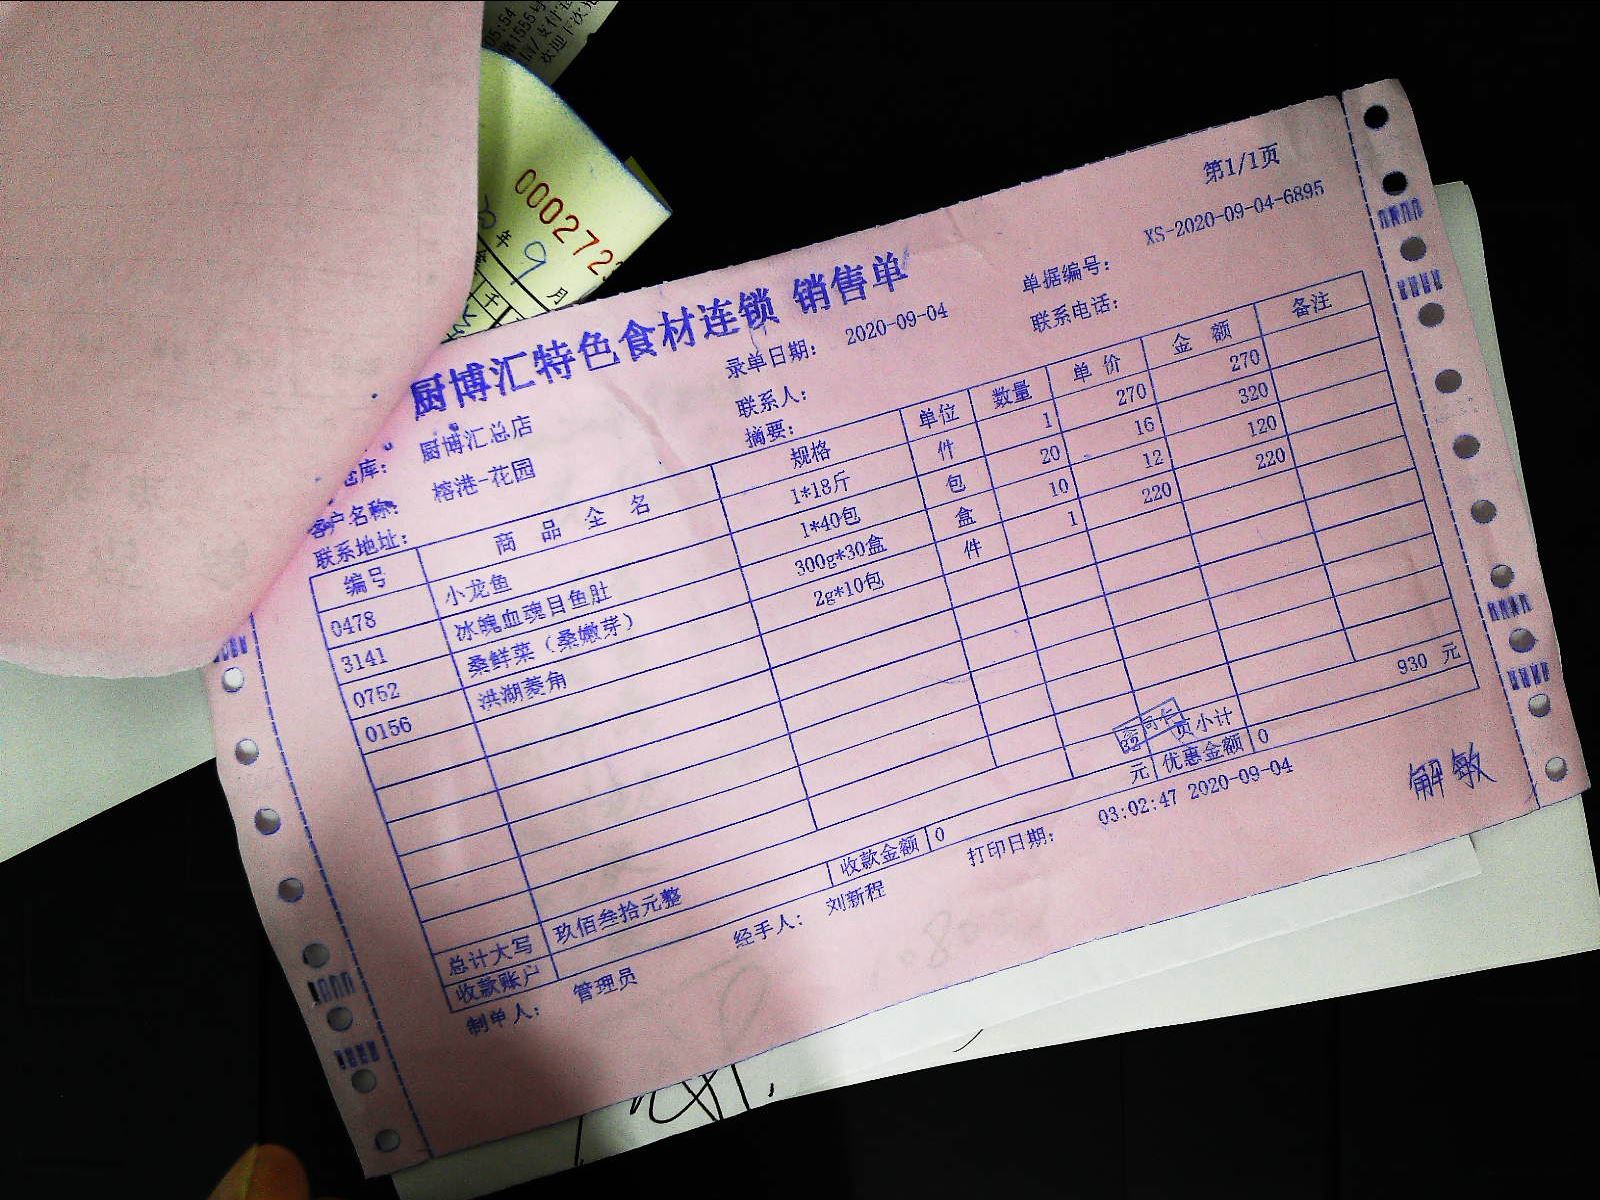 000272
年 9 月
第1/1页
厨博汇特色食材连锁 销售单
单据编号： XS-2020-09-04-6895
录单日期： 2020-09-04
联系电话：
库： 厨博汇总店
联系人：
客户名称： 榕港-花园
摘要：
联系地址：
编号 商品全名 规格 单位 数量 单价 金额 备注
0478 小龙鱼 1*18斤 件 1 270 270
3141 冰魄血魂目鱼肚 1*40包 包 20 16 320
0752 桑鲜菜（桑嫩芽） 300g*30盒 盒 10 12 120
0156 洪湖菱角 2g*10包 件 1 220 220
总计大写 玖佰叁拾元整 页小计 930 元
收款账户 收款金额 0 元 优惠金额 0
制单人： 管理员 经手人： 刘新程 打印日期： 03:02:47 2020-09-04
解敏